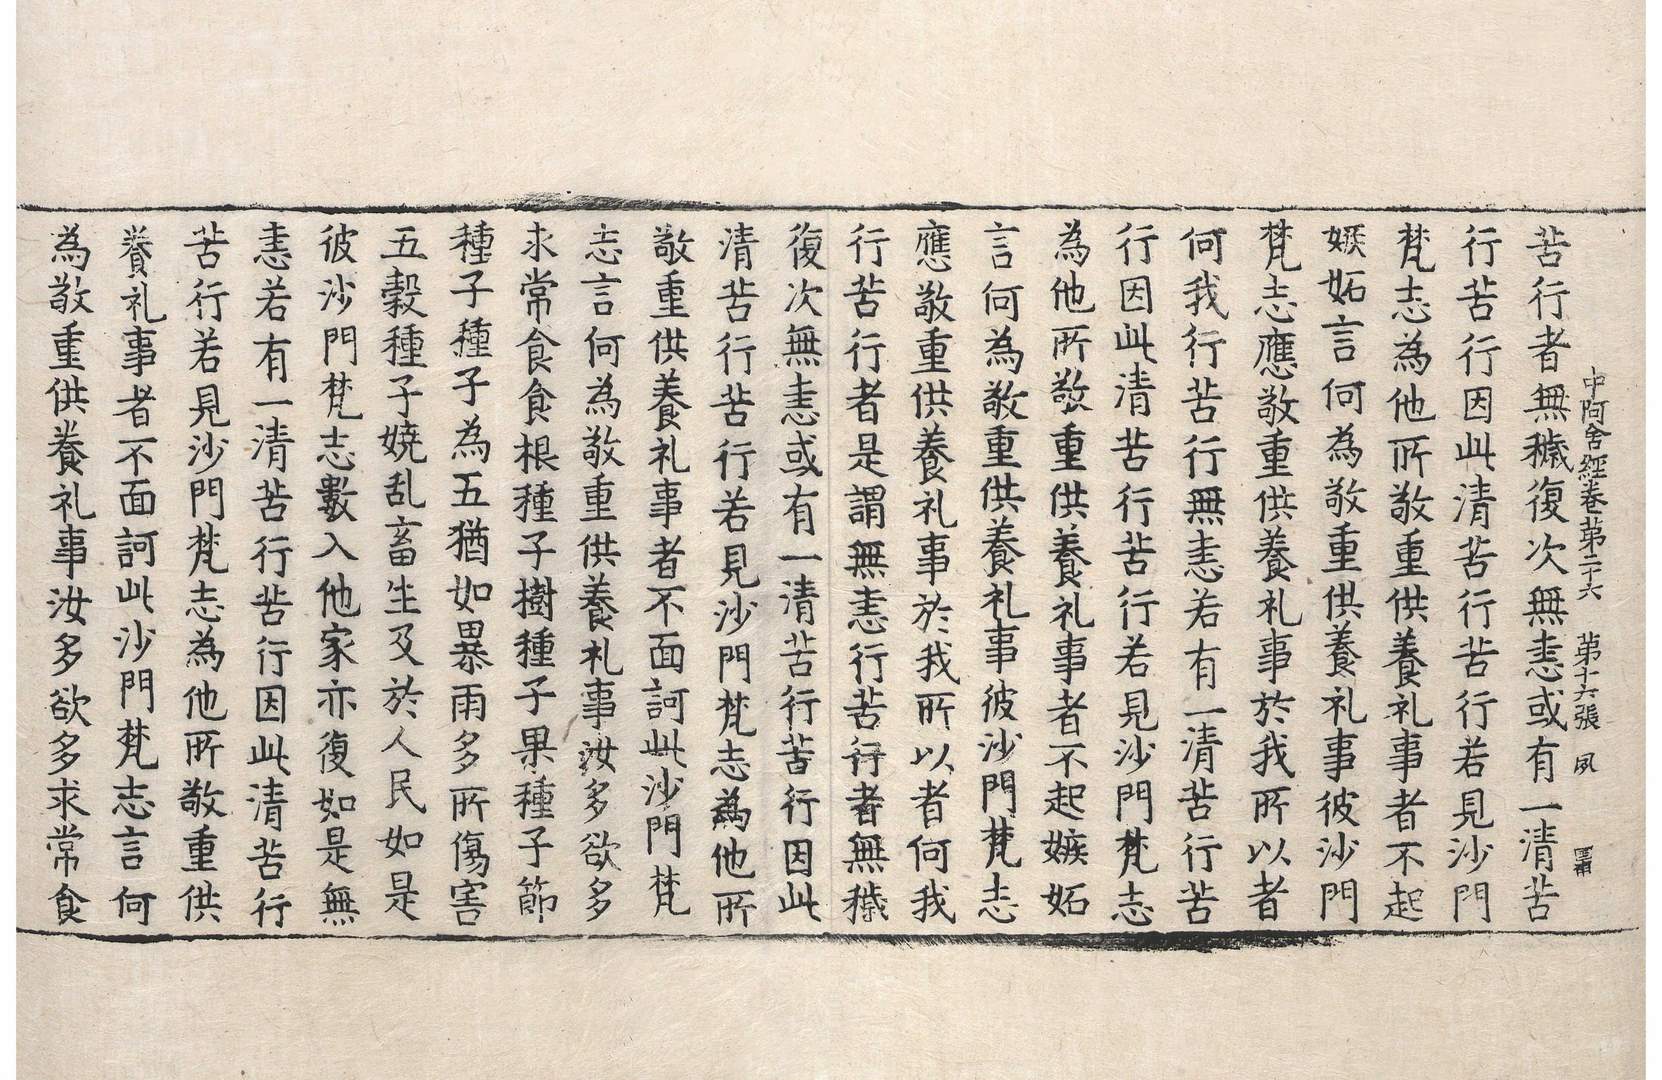 中阿含經卷苐二十六 苐十六張 夙
苦行者無穢復次無恚或有一清苦
行苦行因此清苦行苦行若見沙門
梵志為他所敬重供養礼事者不起
嫉妬言何為敬重供養礼事彼沙門
梵志應敬重供養礼事於我所以者
何我行苦行無恚若有一清苦行苦
行因此清苦行苦行若見沙門梵志
為他所敬重供養礼事者不起嫉妬
言何為敬重供養礼事彼沙門梵志
應敬重供養礼事於我所以者何我
行苦行者是謂無恚行苦行者無穢
復次無恚或有一清苦行苦行因此
清苦行苦行若見沙門梵志為他所
敬重供養礼事者不面訶此沙門梵
志言何為敬重供養礼事汝多欲多
求常食食根種子樹種子果種子節
種子種子為五猶如暴雨多所傷害
五穀種子嬈乱畜生及於人民如是
彼沙門梵志數入他家亦復如是無
恚若有一清苦行苦行因此清苦行
苦行若見沙門梵志為他所敬重供
養礼事者不面訶此沙門梵志言何
為敬重供養礼事汝多欲多求常食